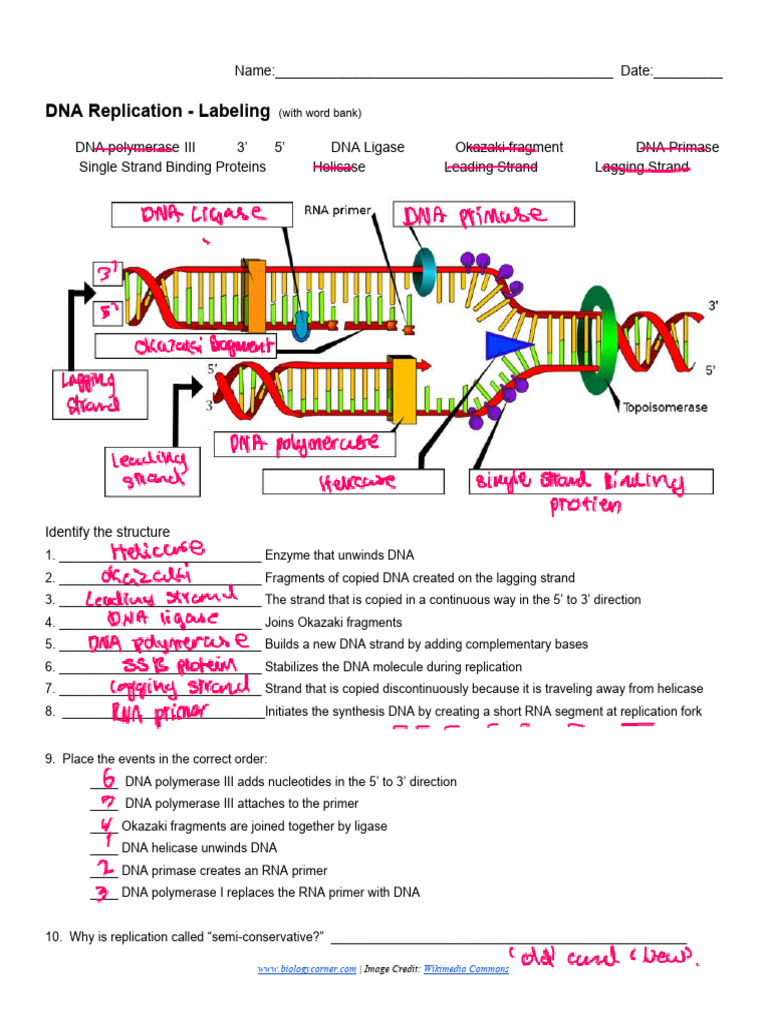 Name:________________________ Date:_________
DNA Replication - Labeling (with word bank)
DNA polymerase III 3' 5' DNA Ligase Okazaki fragment DNA Primase
Single Strand Binding Proteins Helicase Leading Strand Lagging Strand
DNA Ligase RNA primer DNA primase
3'
5'
3'
Okazaki fragment
5'
5'
Lagging
strand
3'
Topoisomerase
DNA polymerase
Leading
strand
Helicase
single strand binding
protien
Identify the structure
1. Helicase Enzyme that unwinds DNA
2. Okazaki Fragments of copied DNA created on the lagging strand
3. Leading strand The strand that is copied in a continuous way in the 5' to 3' direction
4. DNA ligase Joins Okazaki fragments
5. DNA polymerase Builds a new DNA strand by adding complementary bases
6. SSB protein Stabilizes the DNA molecule during replication
7. lagging strand Strand that is copied discontinuously because it is traveling away from helicase
8. RNA primer Initiates the synthesis DNA by creating a short RNA segment at replication fork
9. Place the events in the correct order:
6 DNA polymerase III adds nucleotides in the 5' to 3' direction
DNA polymerase III attaches to the primer
4 Okazaki fragments are joined together by ligase
1 DNA helicase unwinds DNA
2 DNA primase creates an RNA primer
3 DNA polymerase I replaces the RNA primer with DNA
10. Why is replication called “semi-conservative?” ________________________
'old' and 'new'.
www.biologycorner.com | Image Credit: Wikimedia Commons